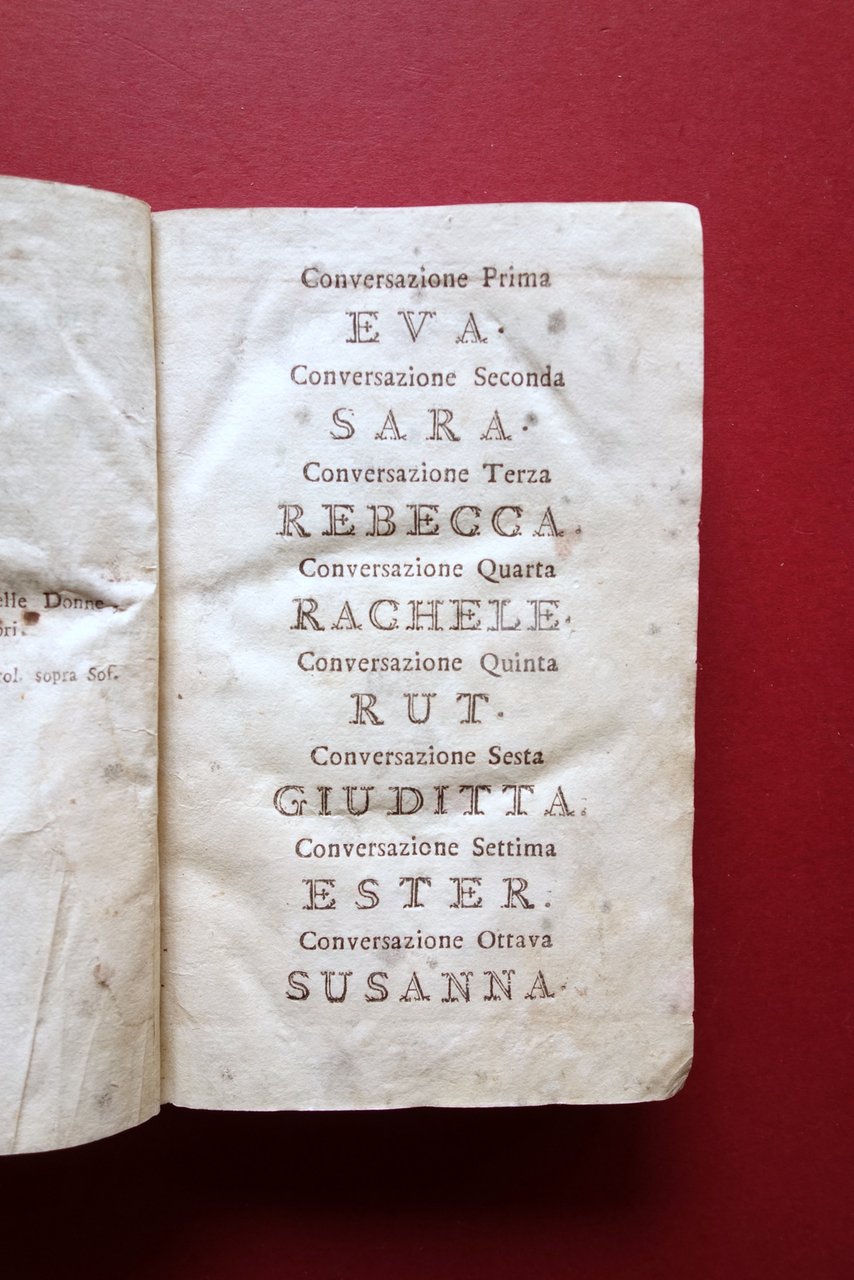 elle Donne
ori.
rol. sopra Sof.
Conversazione Prima
EVA.
Conversazione Seconda
SARA.
Conversazione Terza
REBECCA.
Conversazione Quarta
RACHELE.
Conversazione Quinta
RUT.
Conversazione Sesta
GIUDITTA.
Conversazione Settima
ESTER.
Conversazione Ottava
SUSANNA.